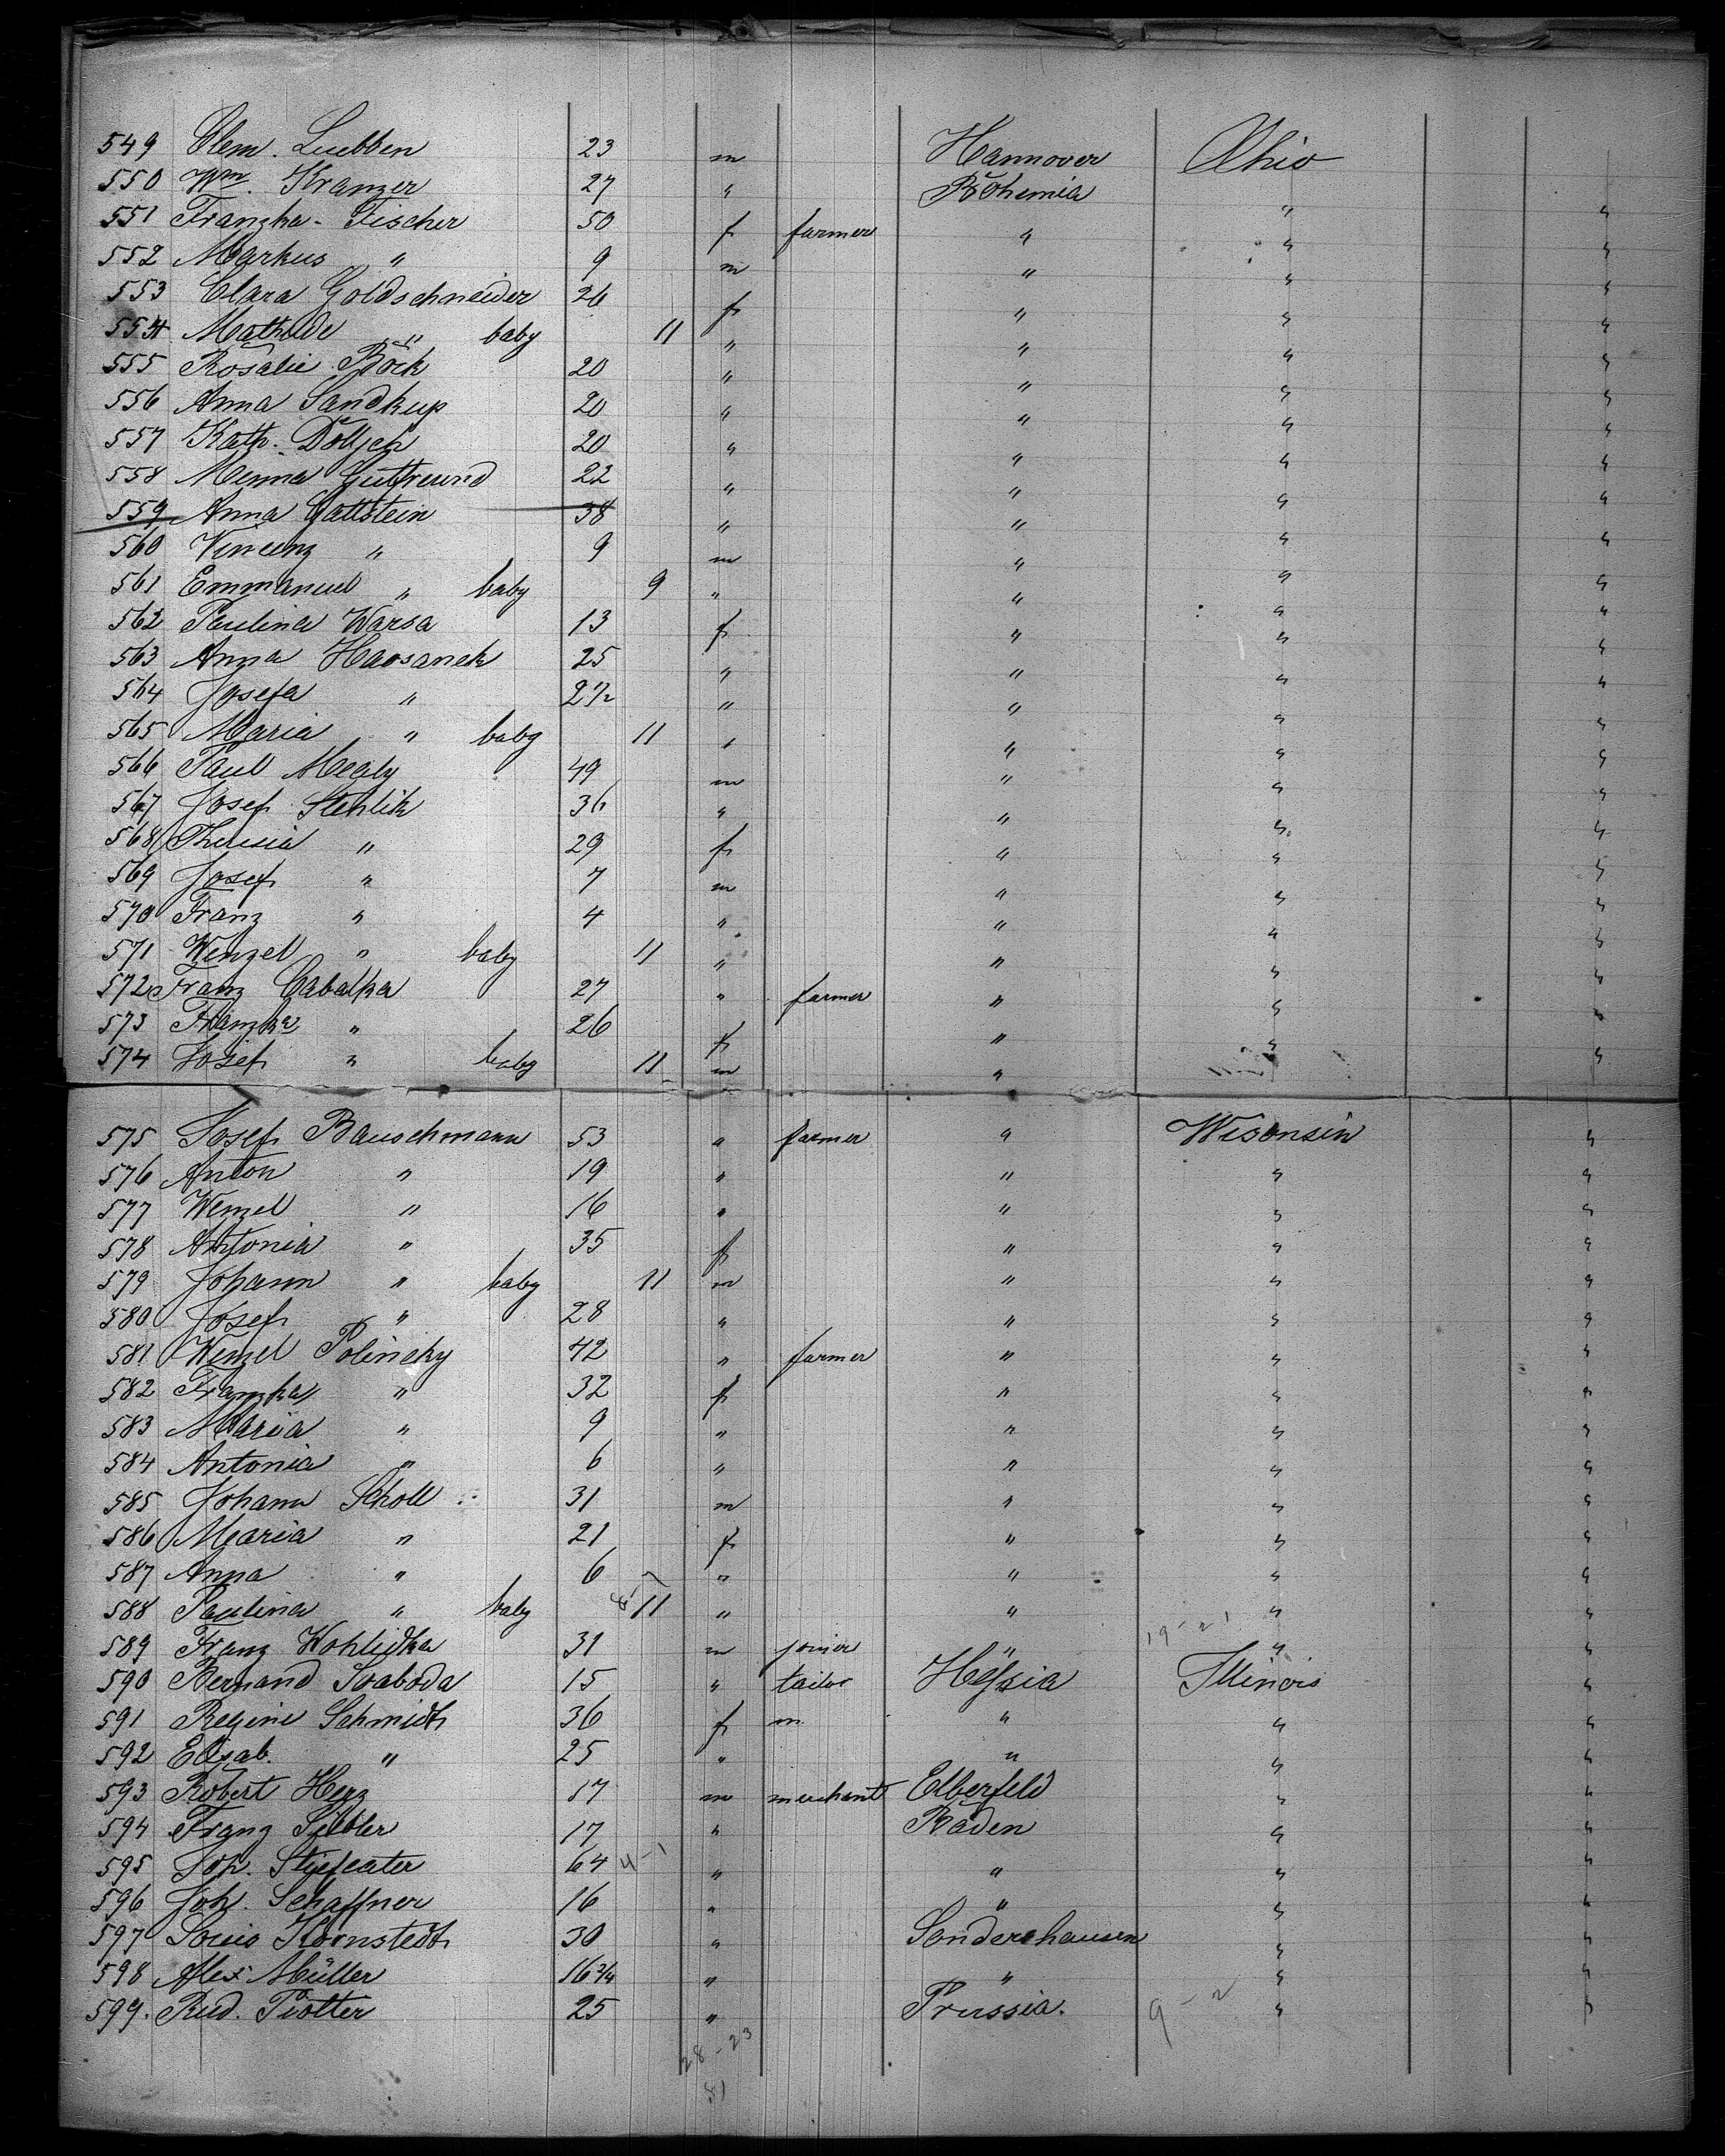 549 Clem. Luebben 23 m Hannover Ohio
550 Wm. Kranzer 27 " Bohemia " "
551 Franzka Fischer 50 f farmer " " "
552 Markus " 9 m " " "
553 Clara Goldschneider 26 f " " "
554 Mathilde " baby 11 " " " "
555 Rosalie Böck 20 " " " "
556 Anna Sandkup 20 " " " "
557 Kath. 20 " " " "
558 Menna Gutfreund 22 " " " "
559 Anna Gattstein 38 " " " "
560 Vincenz " 9 m " " "
561 Emmanuel " baby 9 " " " "
562 Paulina Warsa 13 f " " "
563 Anna Havsanek 25 " " " "
564 Josefa " 2 1/2 " " " "
565 Maria " baby 11 " " " "
566 Paul 49 m " " "
567 Josef Stehlik 36 " " " "
568 Thresia " 29 f " " "
569 Josef " 7 m " " "
570 Franz " 4 " " " "
571 Wenzel " baby 11 " " " "
572 Franz Cabalka 27 " farmer " " "
573 Franzka " 26 f " " "
574 Josef " baby 11 m " " "
575 Josef Bauschmann 53 " farmer " Wisonsin "
576 Anton " 19 " " " "
577 Wenzel " 16 " " " "
578 Antonia " 35 f " " "
579 Johann " baby 11 m " " "
580 Josef " 28 " " " "
581 Wenzel Polinsky 42 " farmer " " "
582 Franzka " 32 f " " "
583 Maria " 9 " " " "
584 Antonia " 6 " " " "
585 Johann Scholl 31 m " " "
586 Maria " 21 f " " "
587 Anna " 6 " " " "
588 Paulina " baby 11 " " " "
589 Franz Wohlidka 31 m joiner " " "
590 Bernand Soaboda 15 " tailor Hessia Illinois "
591 Regine Schmidt 36 f m. " " "
592 Elisab. " 25 " " " "
593 Robert Herz 17 m merchant Elberfeld " "
594 Franz 17 " Baden " "
595 Joh. 64 " " " "
596 Joh. Schaffner 16 " " " "
597 Louis Kornstedt 30 " Sondershausen " "
598 Alex Müller 16 3/4 " " " "
599. Rud. Piotter 25 " Prussia. " "
19-21
4-1
9-2
28-23
51